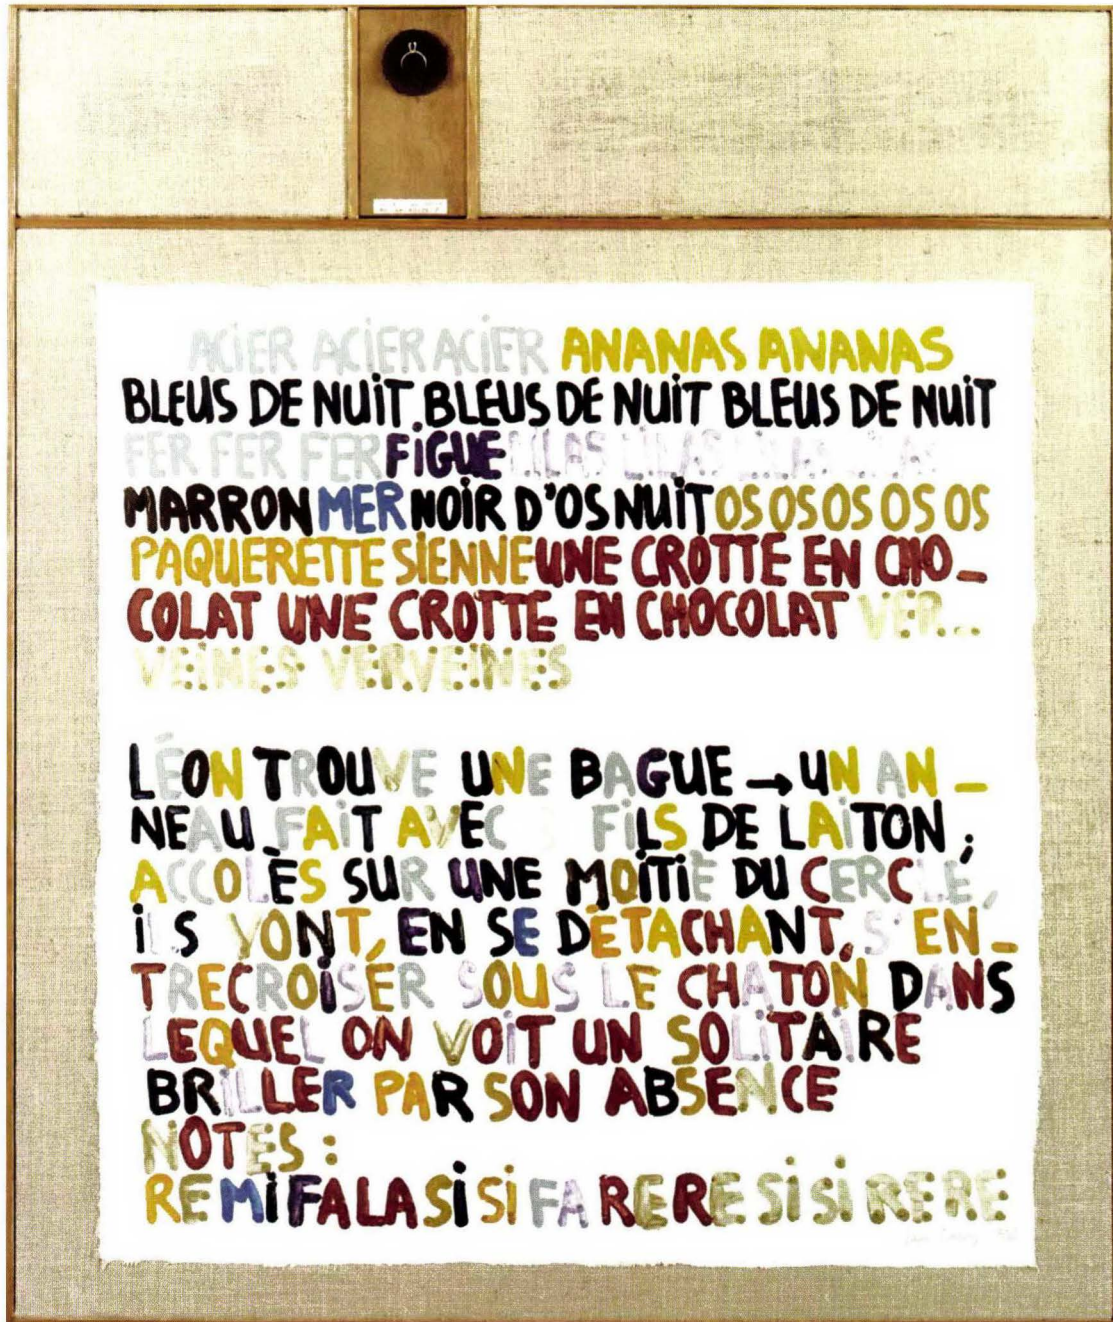 ACiER ACiER ACiER ANANAS ANANAS
BLEUS DE NUiT BLEUS DE NUiT BLEUS DE NUiT
FER FER FER FiGUE LILAS LILAS LILAS LILAS
MARRON MER NOiR D'OS NUiT OS OS OS OS OS
PAQUERETTE SiENNE UNE CROTTE EN CHO_
COLAT UNE CROTTE EN CHOCOLAT VER_
VEiNES VERVEiNES
LÉON TROUVE UNE BAGUE → UN AN_
NEAU FAiT AVEC 3 FiLS DE LAiTON ;
ACCOLÈS SUR UNE MOiTiÈ DU CERCLE,
iLS VONT, EN SE DÈTACHANT, S'EN_
TRECROiSÉR SOUS LE CHATON DANS
LEQUEL ON VOiT UN SOLiTAiRE
BRiLLER PAR SON ABSENCE
NOTES :
RE Mi FA LA Si Si FA RE RE RE Si Si RE RE